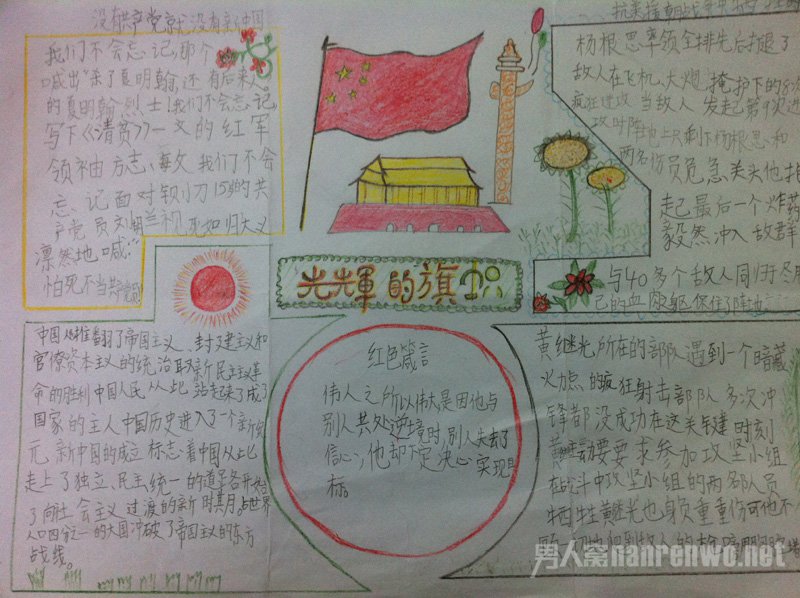 没有共产党就没有新中国
我们不会忘记,那个
喊出"杀了夏明翰,还有后来人"
的夏明翰烈士!我们不会忘记
写下《清贫》一文的红军
领袖方志敏
我们不会
忘记面对铡刀15岁的共
产党员刘胡兰视死如归大义
凛然地喊:"
怕死不当共产党员
抗美援朝战争中
杨根思率领全排先后打退了
敌人在飞机、大炮掩护下的8次
疯狂进攻,当敌人发起第9次进
攻时阵地上只剩下杨根思和
两名伤员危急关头他抱
起最后一个炸药
毅然冲入敌群
与40多个敌人同归于尽用
己的血肉躯保住了阵地
光辉的旗帜
中国人民推翻了帝国主义、封建主义和
官僚资本主义的统治取得新民主主义革
命的胜利中国人民从此站起来了成了
国家的主人中国历史进入了一个新纪
元,新中国的成立标志着中国从此
走上了独立、民主、统一的道路开始
了向社会主义过渡的新时期,占世界
人口四分一的大国冲破了帝国主义的东方
战线。
红色箴言
伟人之所以伟大,是因他与
别人共处逆境时,别人失去了
信心,他却下定决心实现目
标。
黄继光所在的部队遇到一个暗藏
火力点的疯狂射击部队多次冲
锋都没成功在这关键时刻
黄继光要求参加攻坚小组
在战斗中攻坚小组的两名队员
牺牲黄继光也身负重重伤可他不
男人窝nanrenwo.net